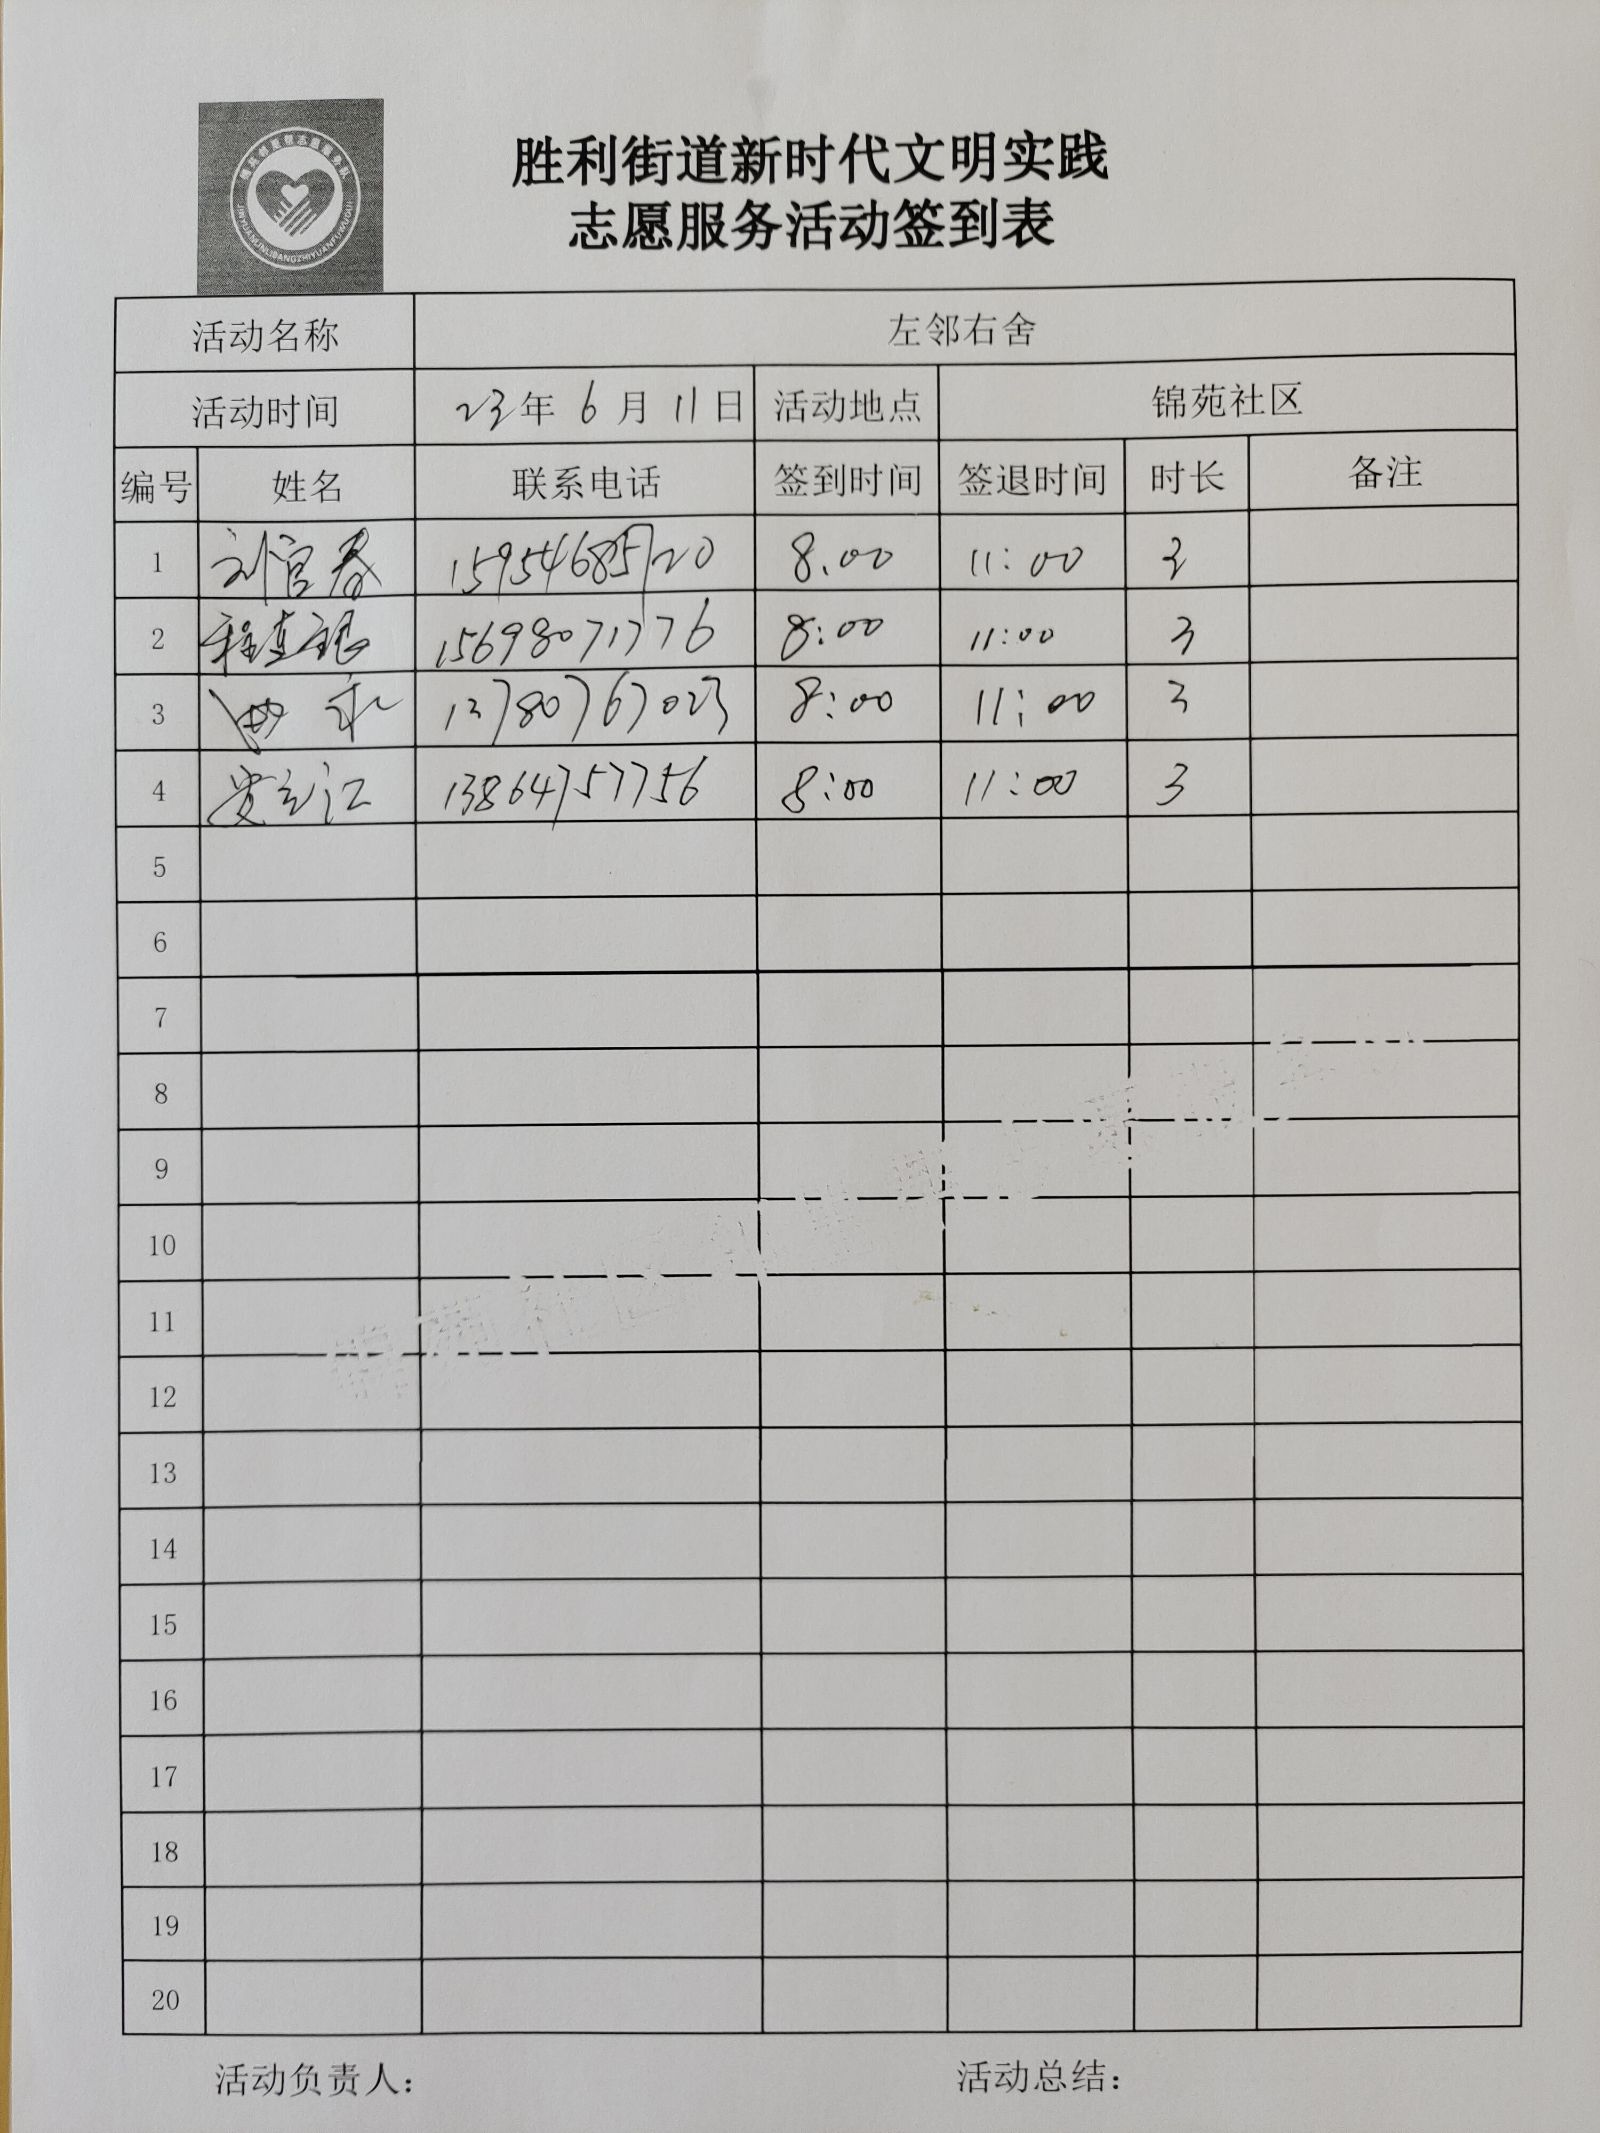 胜利街道新时代文明实践
志愿服务活动签到表
活动名称 左邻右舍
活动时间 23年 6月 11日 活动地点 锦苑社区
编号 姓名 联系电话 签到时间 签退时间 时长 备注
1 刘官春 15954685720 8.00 11:00 3
2 程直银 15698071776 8:00 11:00 3
3 13780767023 8:00 11:00 3
4 13864757756 8:00 11:00 3
5
6
7
8
9
10
11
12
13
14
15
16
17
18
19
20
活动负责人： 活动总结：